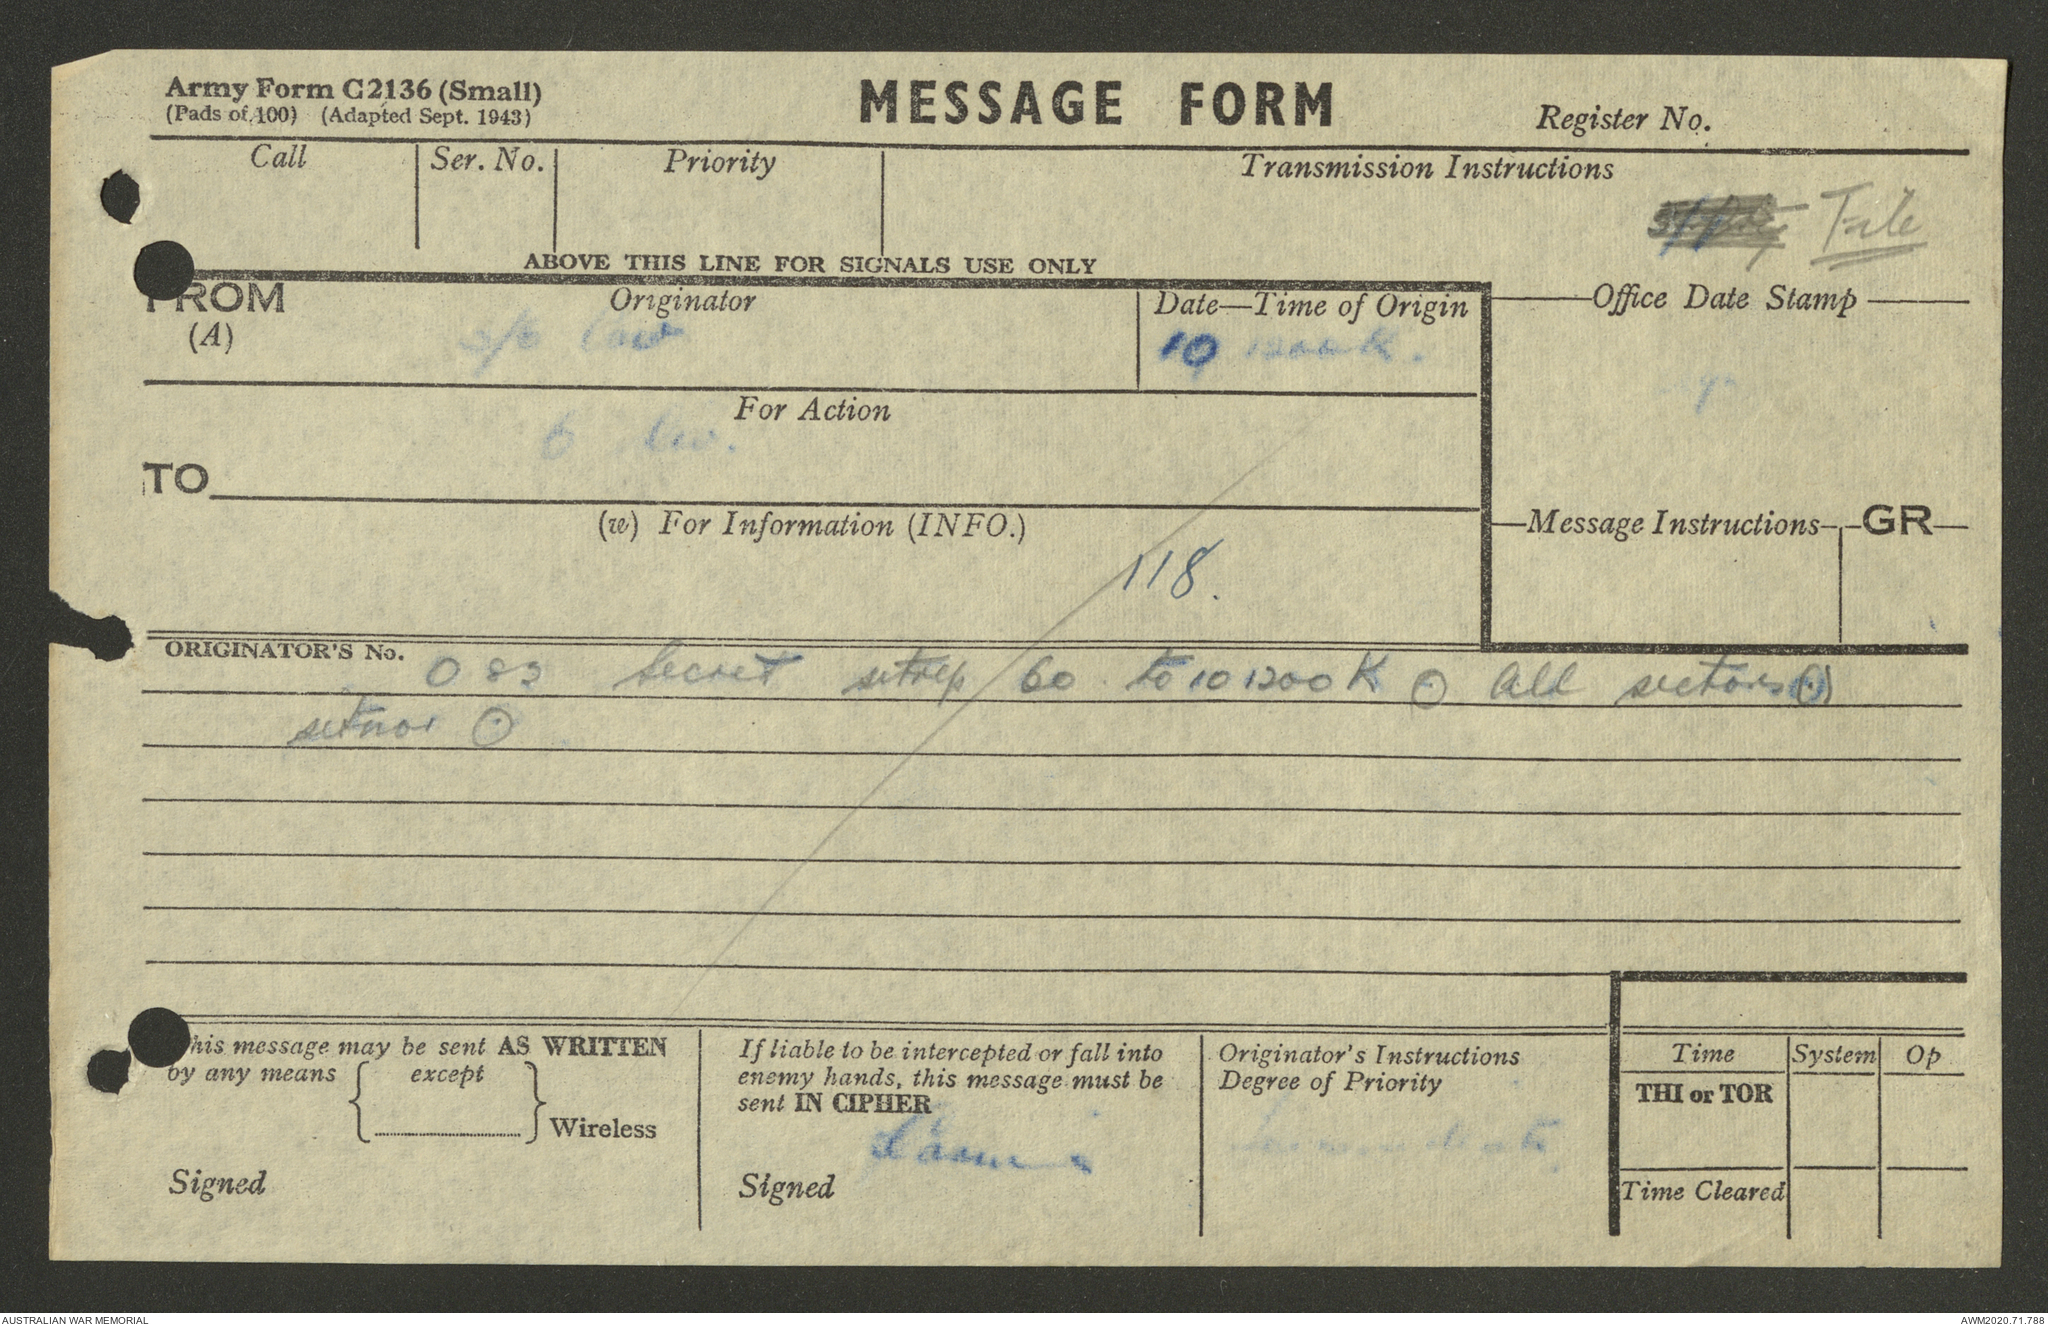 Army Form C2136 (Small)
(Pads of 100) (Adapted Sept. 1943)
MESSAGE FORM
Register No.
Call
Ser. No.
Priority
Transmission Instructions
File
ABOVE THIS LINE FOR SIGNALS USE ONLY
FROM
(A)
Originator
Date—Time of Origin
10 1200 K.
Office Date Stamp
For Action
TO
(w) For Information (INFO.)
118.
Message Instructions
GR
ORIGINATOR'S No.
O 82 Secret sitrep 60 to 10 1200 K ⊙ all sectors ⊙
sitnor ⊙
This message may be sent AS WRITTEN
by any means except
Wireless
Signed
If liable to be intercepted or fall into
enemy hands, this message must be
sent IN CIPHER
Signed
Originator's Instructions
Degree of Priority
Immediate
Time
System
Op
THI or TOR
Time Cleared
AUSTRALIAN WAR MEMORIAL
AWM2020.71.788